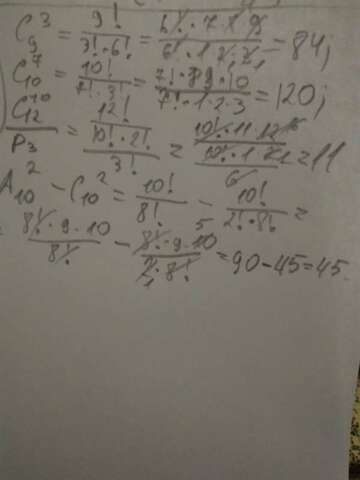 C₉³ = 9!/(3!·6!) = (6!·7·8·9)/(6!·1·2·3) = 84;
C₁₀⁷ = 10!/(7!·3!) = (7!·8·9·10)/(7!·1·2·3) = 120;
C₁₂¹⁰/P₃ = (12!/(10!·2!))/3! = ((10!·11·12)/(10!·1·2))/6 = 11
A₁₀² - C₁₀² = 10!/8! - 10!/(2!·8!) =
(8!·9·10)/8! - (8!·9·10)/(2·8!) = 90-45=45.